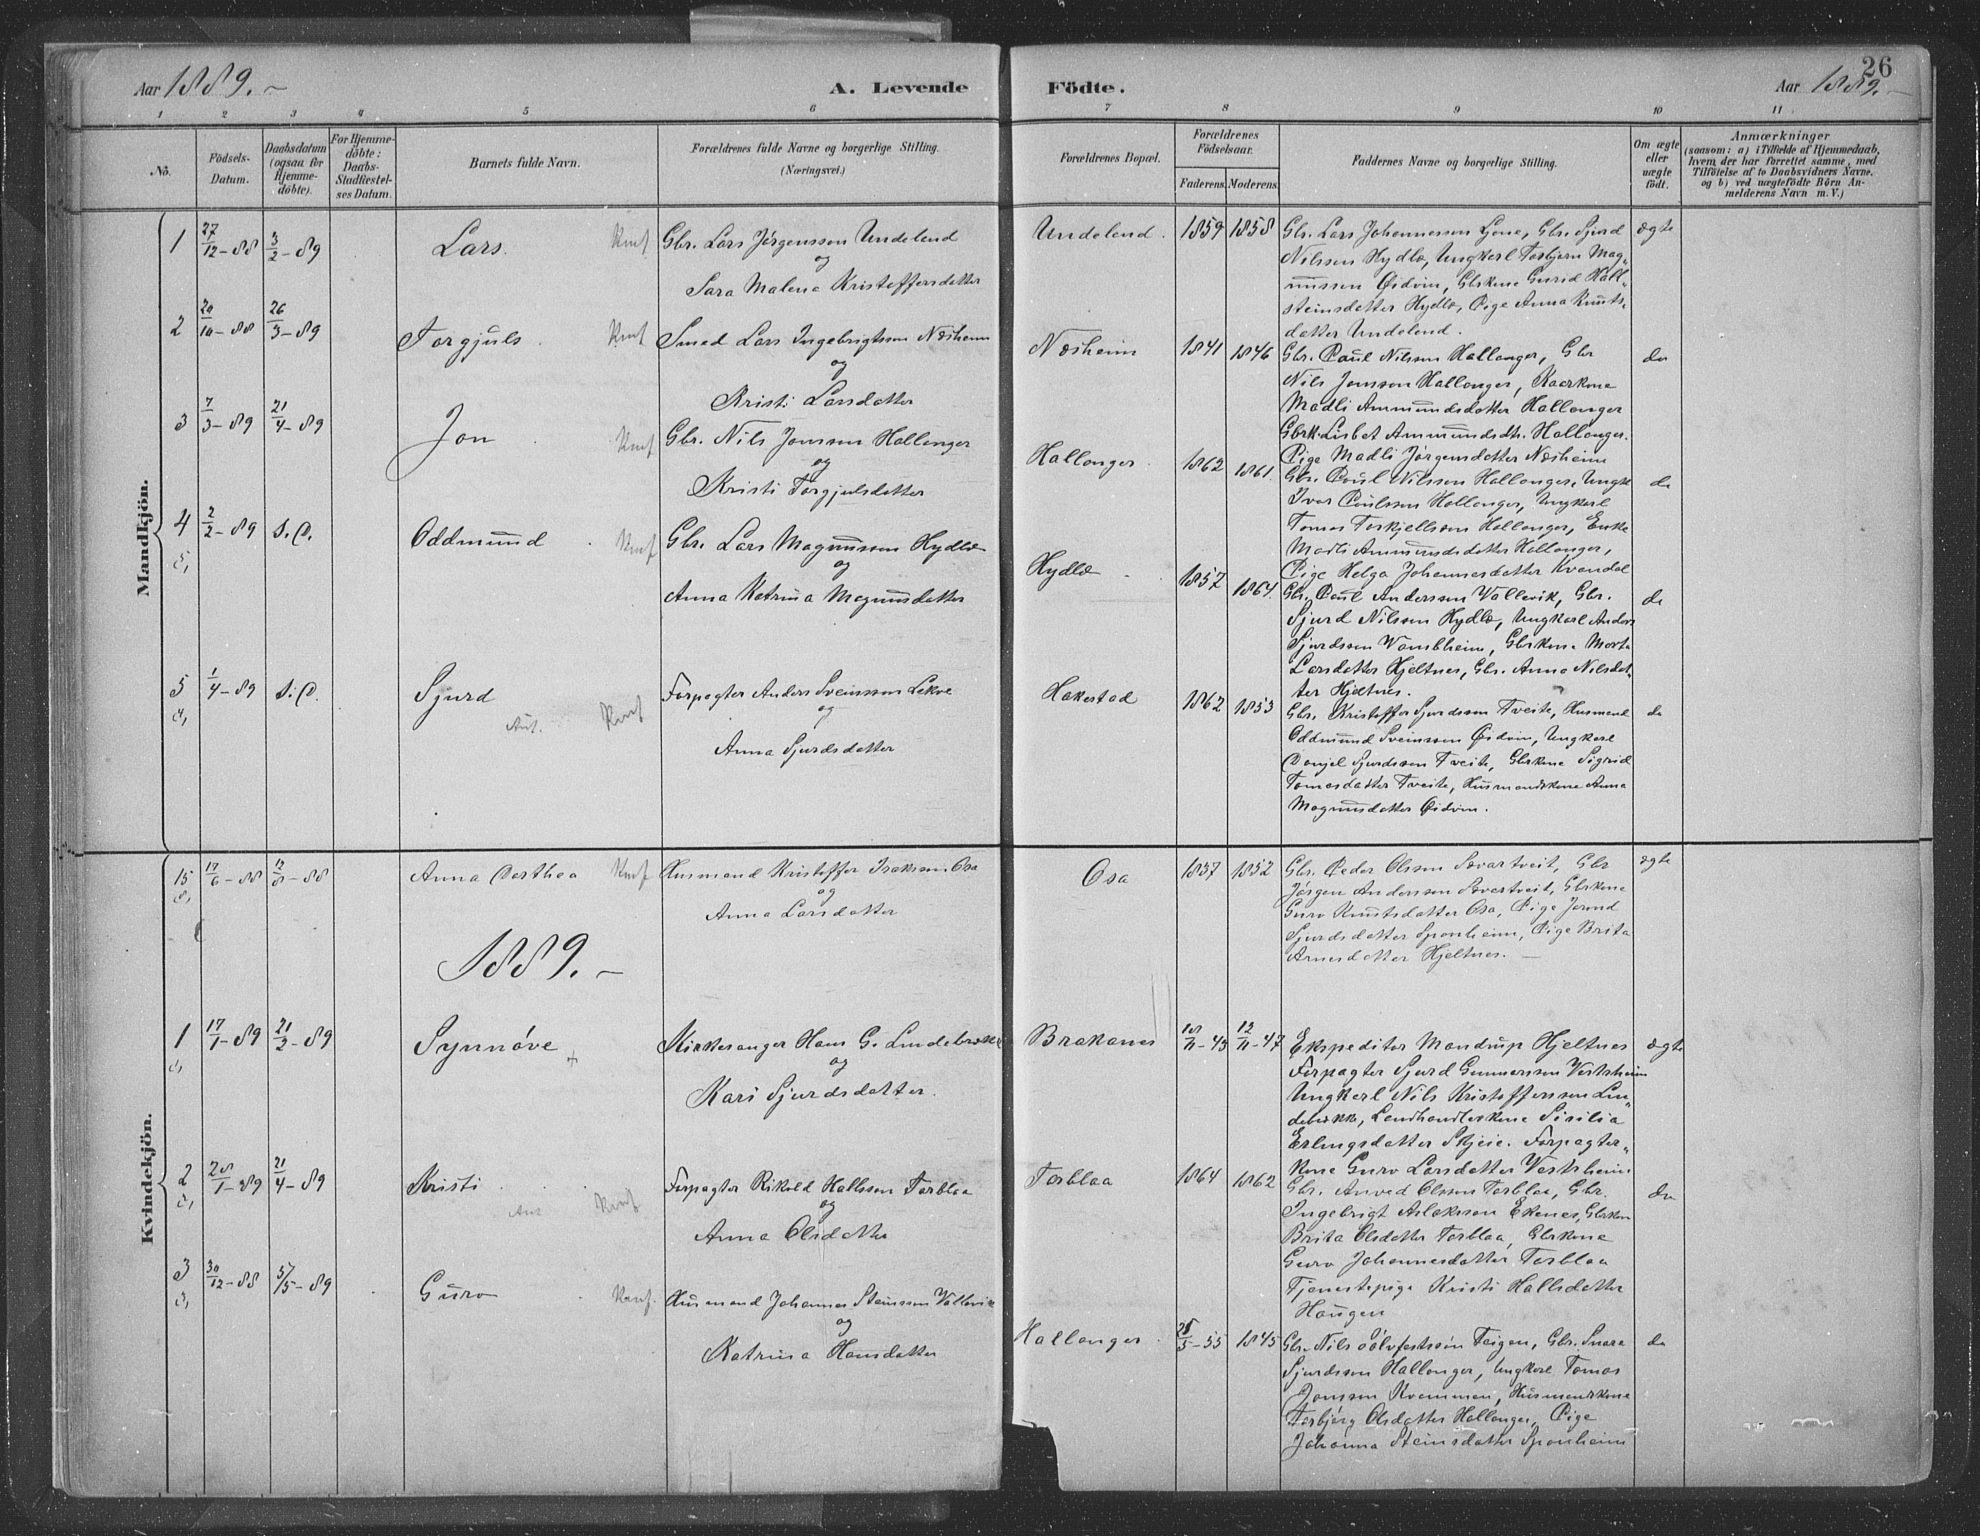 26
Aar 1889.
A. Levende Födte.
Aar 1889.
1 2 3 4 5 6 7 8 9 10 11
No.
Födsels-Datum.
Daabsdatum (ogsaa for Hjemme-döbte).
For Hjemme-döbte: Daabs-Stadfæstel-ses Datum.
Barnets fulde Navn.
Forældrenes fulde Navne og borgerlige Stilling. (Næringsvei.)
Forældrenes Bopæl.
Forældrenes Födselsaar.
Faderens. Moderens.
Faddernes Navne og borgerlige Stilling.
Om ægte eller uægte födt.
Anmærkninger
(saasom: a) i Tilfælde af Hjemmedaab,
hvem der har forrettet samme, med
Tilföielse af to Daabsvidners Navne,
og b) ved uægtefödte Börn An-
melderens Navn m. V.)
Mandkjön.
1 27/12-88 3/2-89 Lars. Konf
Gbr. Lars Jørgensson Undelend
og
Sara Malena Kristoffersdatter
Undelend. 1859 1858
Gbr. Lars Johannesson Ljone, Gbr. Sjurd
Nilssen Hydlo, Ungkarl Torbjørn Mag-
nussen Øidvin, Gbrkone Gurid Hall-
steinsdatter Hydlo, Pige Anna Knuts-
datter Undelend.
ægte
2 20/10-88 26/3-89 Torgjuls Konf
Smed Lars Ingebrigtsson Næsheim
og
Kristi Larsdatter
Næsheim 1841 1846
Gbr. Paul Nilsson Hallanger, Gbr
Nils Jonsson Hallanger, Kaarkone
Madli Ammundsdatter Hallanger
Gbrk. Lisbet Ammundsdtr. Hallanger.
Pige Madli Jørgensdatter Næsheim
do
3 7/3-89 21/4-89 Jon Konf
Gbr. Nils Jonsson Hallanger
og
Kristi Torgjulsdatter
Hallanger. 1862 1861.
Gbr. Paul Nilsson Hallanger, Ungk
Ivar Paulsson Hallanger, Ungkarl
Tomas Torkjellsson Hallanger, Enke
Madli Ammundsdatter Hallanger,
Pige Helga Johannesdatter Kvandal
do
4 2/2-89 S.D. Oddmund Konf
Gbr. Lars Magnusson Hydlo
og
Anna Katrina Magnusdatter
Hydlo 1857 1864.
Gbr. Paul Anderssen Vallevik, Gbr.
Sjurd Nilssen Hydlo, Ungkarl Anders
Sjurdsson Vambheim, Gbrkone Marta
Larsdatter Hjeltnes, Gbr. Anna Nilsdat-
ter Hjeltnes.
do
5 1/4-89 S.D. Sjurd Konf
Forpagter Anders Sveinsson Lekve
og
Anna Sjurdsdatter
Hakestad 1862 1853
Gbr. Kristoffer Sjurdsson Tveite, Husmand
Oddmund Sveinsson Øidvin, Ungkarl
Danjel Sjurdsson Tveite, Gbrkone Sigrid
Tomasdatter Tveite, Husmandskone Anna
Magnusdatter Øidvin.
do
Kvindekjön.
15 17/6-88 12/8-88 Anna Dorthea Konf
Husmand Kristoffer Isaksen Osa
og
Anna Larsdatter
Osa 1837 1852
Gbr. Peder Olssen Sævartveit, Gbr
Jørgen Anderssen Sævartveit, Gbrkone
Guro Knutsdatter Osa, Pige Jorund
Sjurdsdatter Sponheim, Pige Brita
Arnesdatter Hjeltnes.
ægte
1889.
1 17/1-89 21/2-89 Synnøve +
Kirkesanger Hans G. Lindebrekke
og
Kari Sjurdsdatter.
Brakanes 18/11-43 12/11-47
Ekspeditør Mandrup Hjeltnes
Forpagter Sjurd Gunnarsson Vestrheim
Ungkarl Nils Kristofferssen Lin-
debrekke, Landhandlerkone Sisilia
Erlingsdatter Skjeie. Forpagter-
kone Guro Larsdatter Vestrheim
ægte
2 28/1-89 21/4-89 Kristi Konf
Forpagter Rikold Hallsson Torblaa
og
Anna Olsdatter
Torblaa 1864 1862
Gbr. Anved Olssen Torblaa, Gbr.
Ingebrigt Aslakssen Ekenes, Gbrkone
Brita Olsdatter Torblaa, Gbrkone
Guro Johannesdatter Torblaa
Tjenestepige Kristi Hallsdatter
Haugen
do
3 30/12-88 5/5-89 Guro Konf.
Husmand Johannes Steinsson Vallevik
og
Katrina Hansdatter
Hallanger. 28/5-55 1845
Gbr. Nils Sølvfestsøn Teigen, Gbr. Snara
Sjurdsson Hallanger, Ungkarl Tomas
Jonsson Kvammen, Husmandskone
Torbjørg Olsdatter Hallanger, Pige
Johanna Steinsdatter Sponheim
do